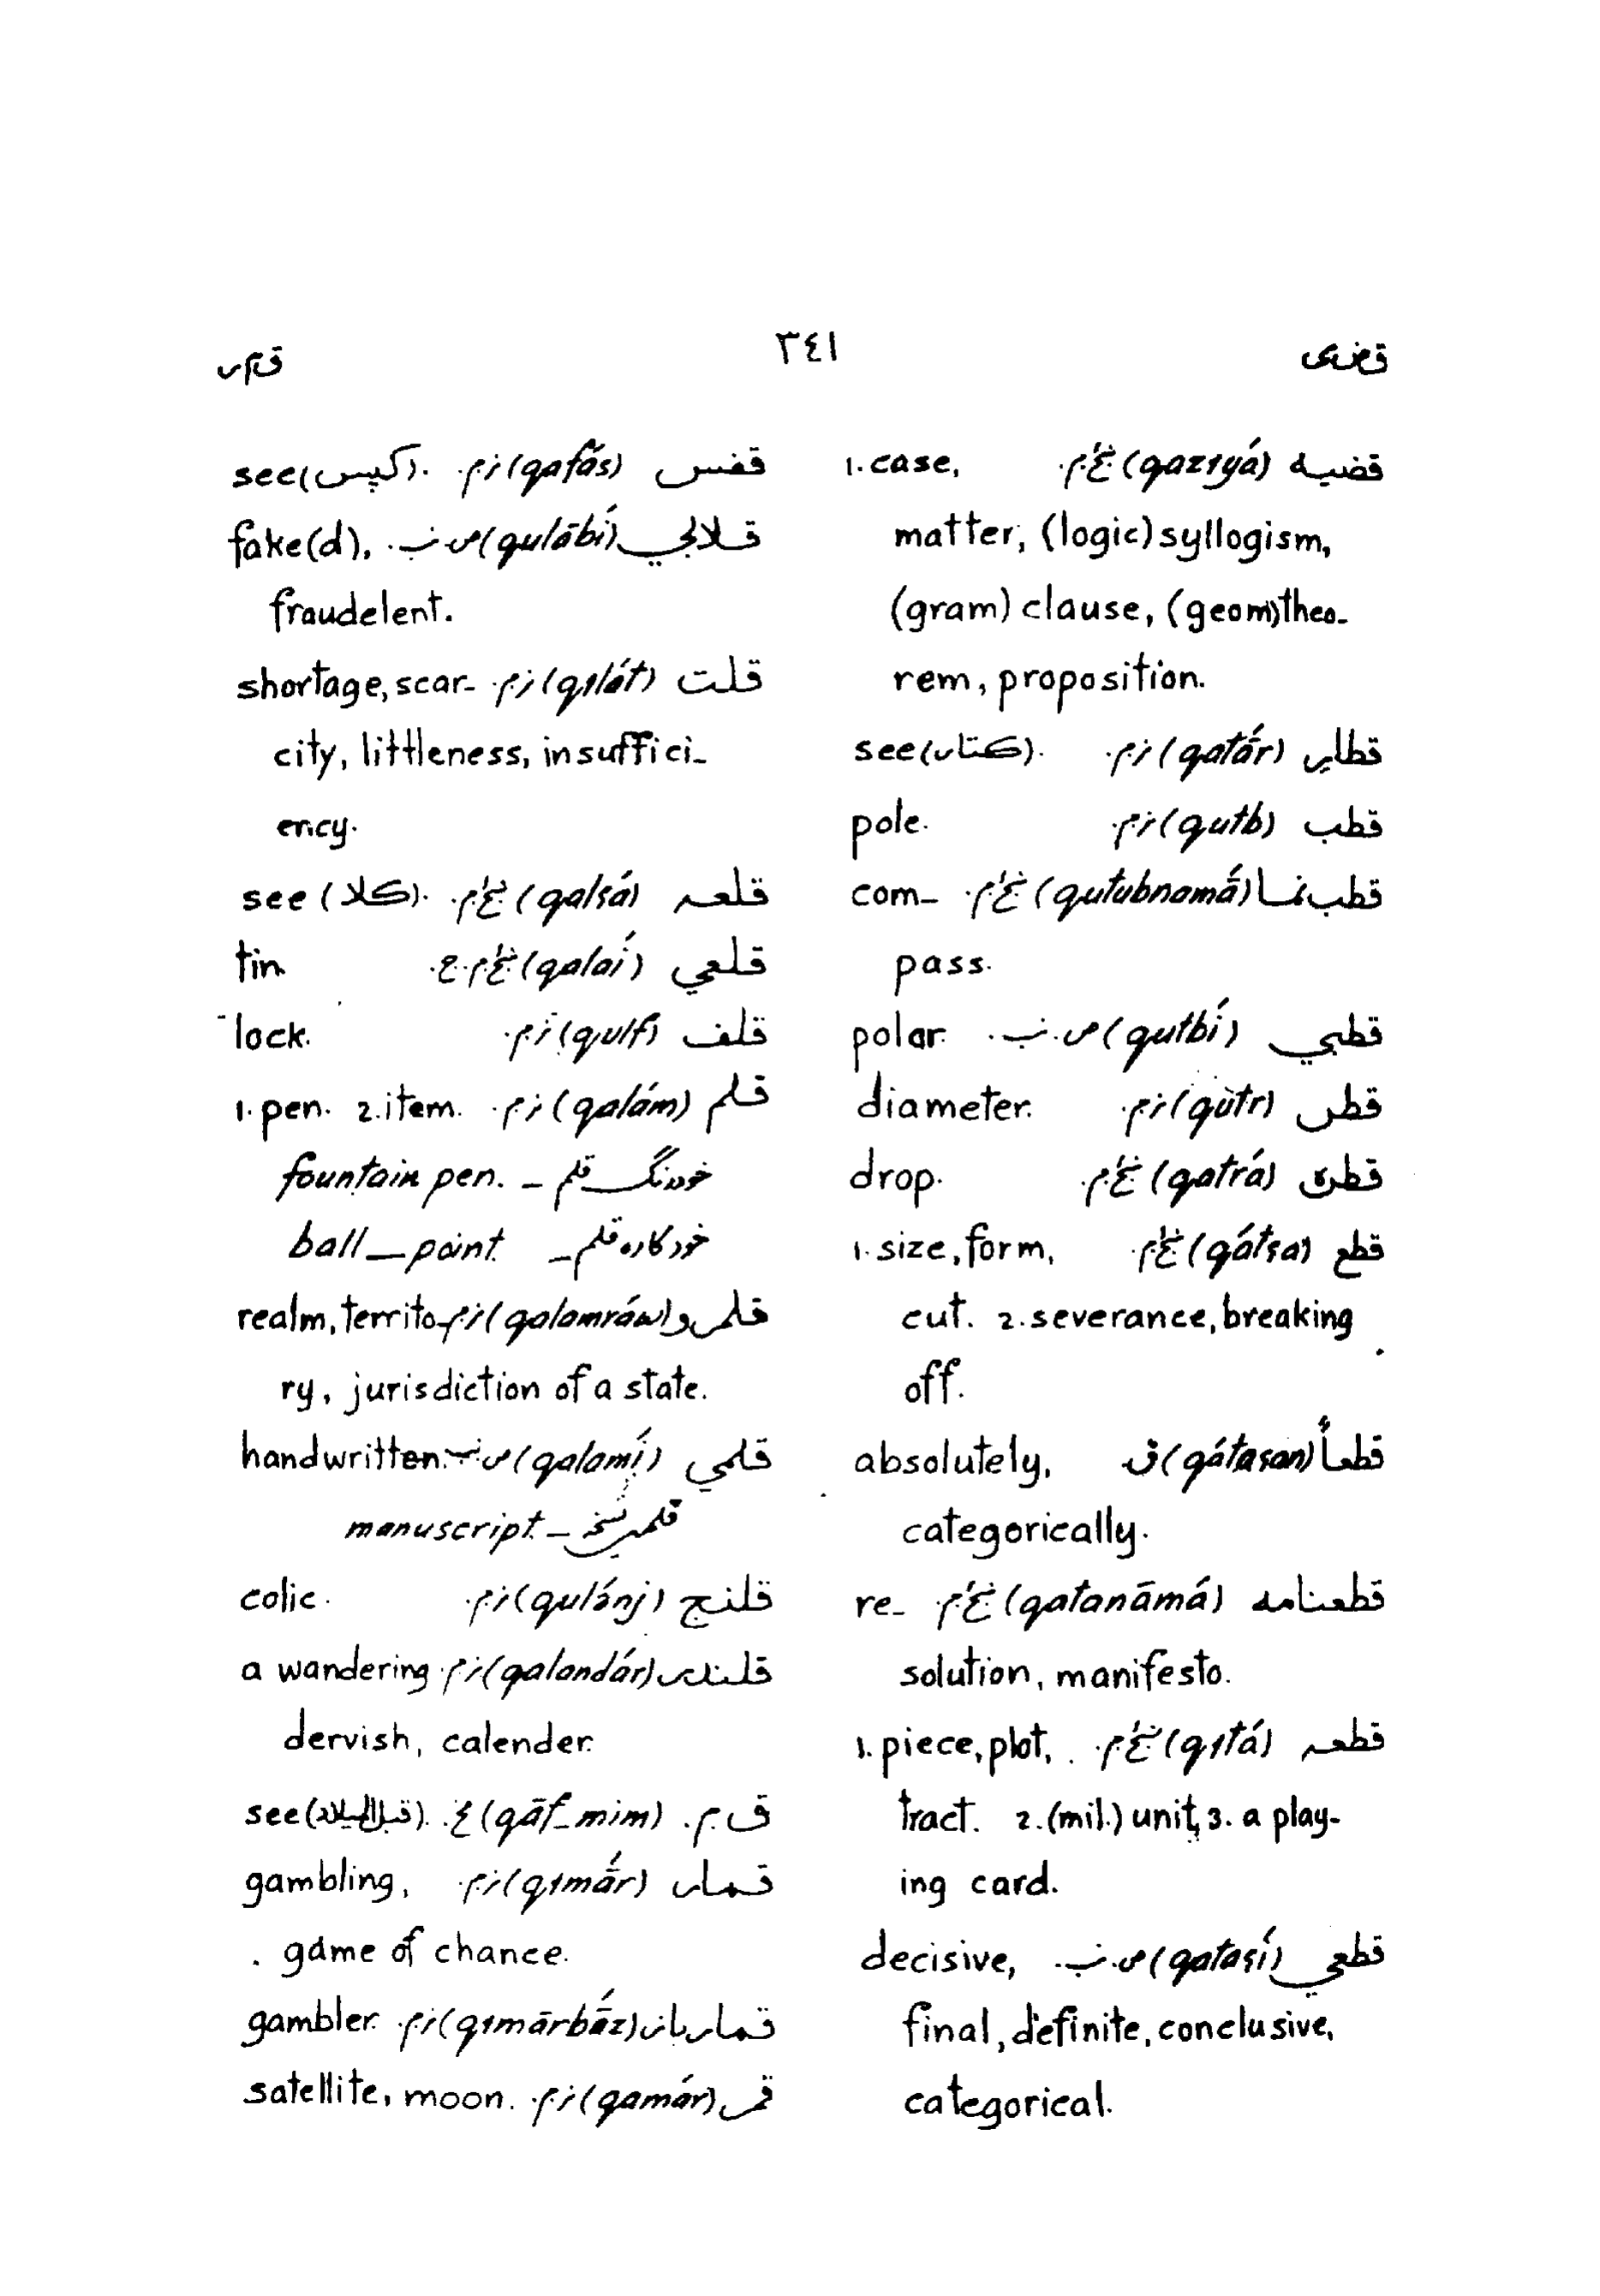 قضیه (qazıyá) 1. case,
matter, (logic) syllogism,
(gram) clause, (geom) theo-
rem, proposition.
قطار (qatā́r) see (کتار).
قطب (qutb) pole.
قطب نما (qutubnamā́) com-
pass.
قطبي (qutbí) polar.
قطر (qútr) diameter.
قطره (qatrá) drop.
قطع (qátʕa) 1. size, form,
cut. 2. severance, breaking
off.
قطعاً (qátaʕan) ق absolutely,
categorically.
قطعنامه (qatanāmá) re-
solution, manifesto.
قطعه (qıtá) 1. piece, plot,
tract. 2. (mil.) unit, 3. a play-
ing card.
قطعي (qataʕí) decisive,
final, definite, conclusive,
categorical.
٣٤١
قفس (qafás) see (کپس).
قلابي (qulābí) fake(d),
fraudelent.
قلت (qılát) shortage, scar-
city, littleness, insuffici-
ency.
قلعه (qalʕá) see (کلا).
قلعي (qalaí) tin
قلف (qulf) lock.
قلم (qalám) 1. pen. 2. item.
خودرنگ قلم _ fountain pen.
خودکاره قلم _ ball_point
قلمرو (qalamráw) realm, territo-
ry, jurisdiction of a state.
قلمي (qalamí) handwritten.
manuscript _
قلنج (qulánj) colic.
قلندر (qalandár) a wandering
dervish, calender.
ق.م. (qāf_mim) see (قبل المیلاد).
قمار (qımā́r) gambling,
game of chance.
قمارباز (qımārbā́z) gambler.
قمر (qamár) satellite, moon.